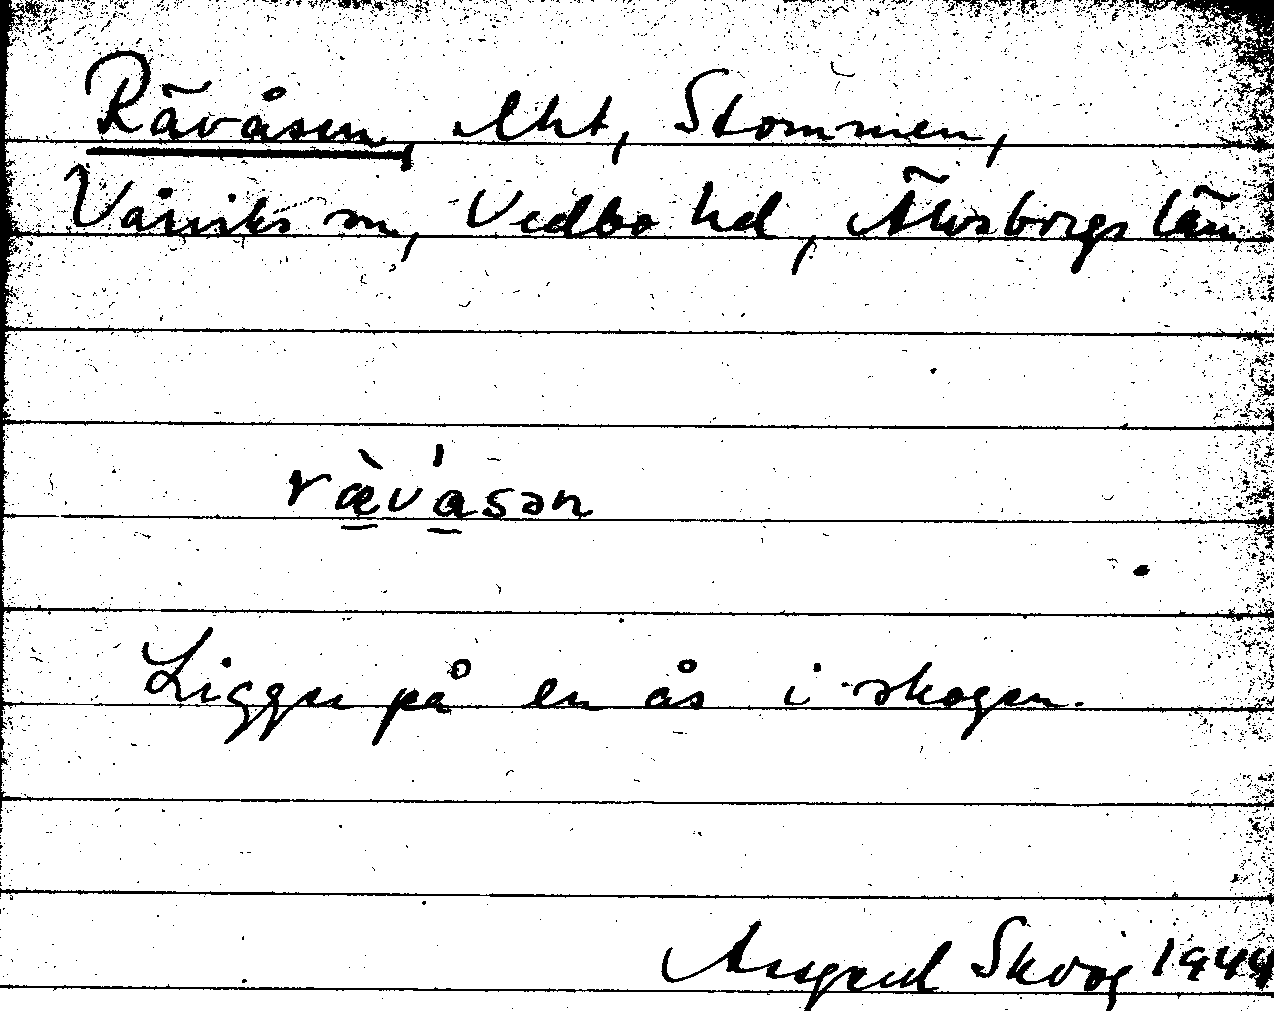 Rävåsen, lht, Stommen,
Vårviks sn, Vedbo hd, Älvsborgs län
ræ̀v'asən
Ligger på en ås i skogen.
August Skoog 1944